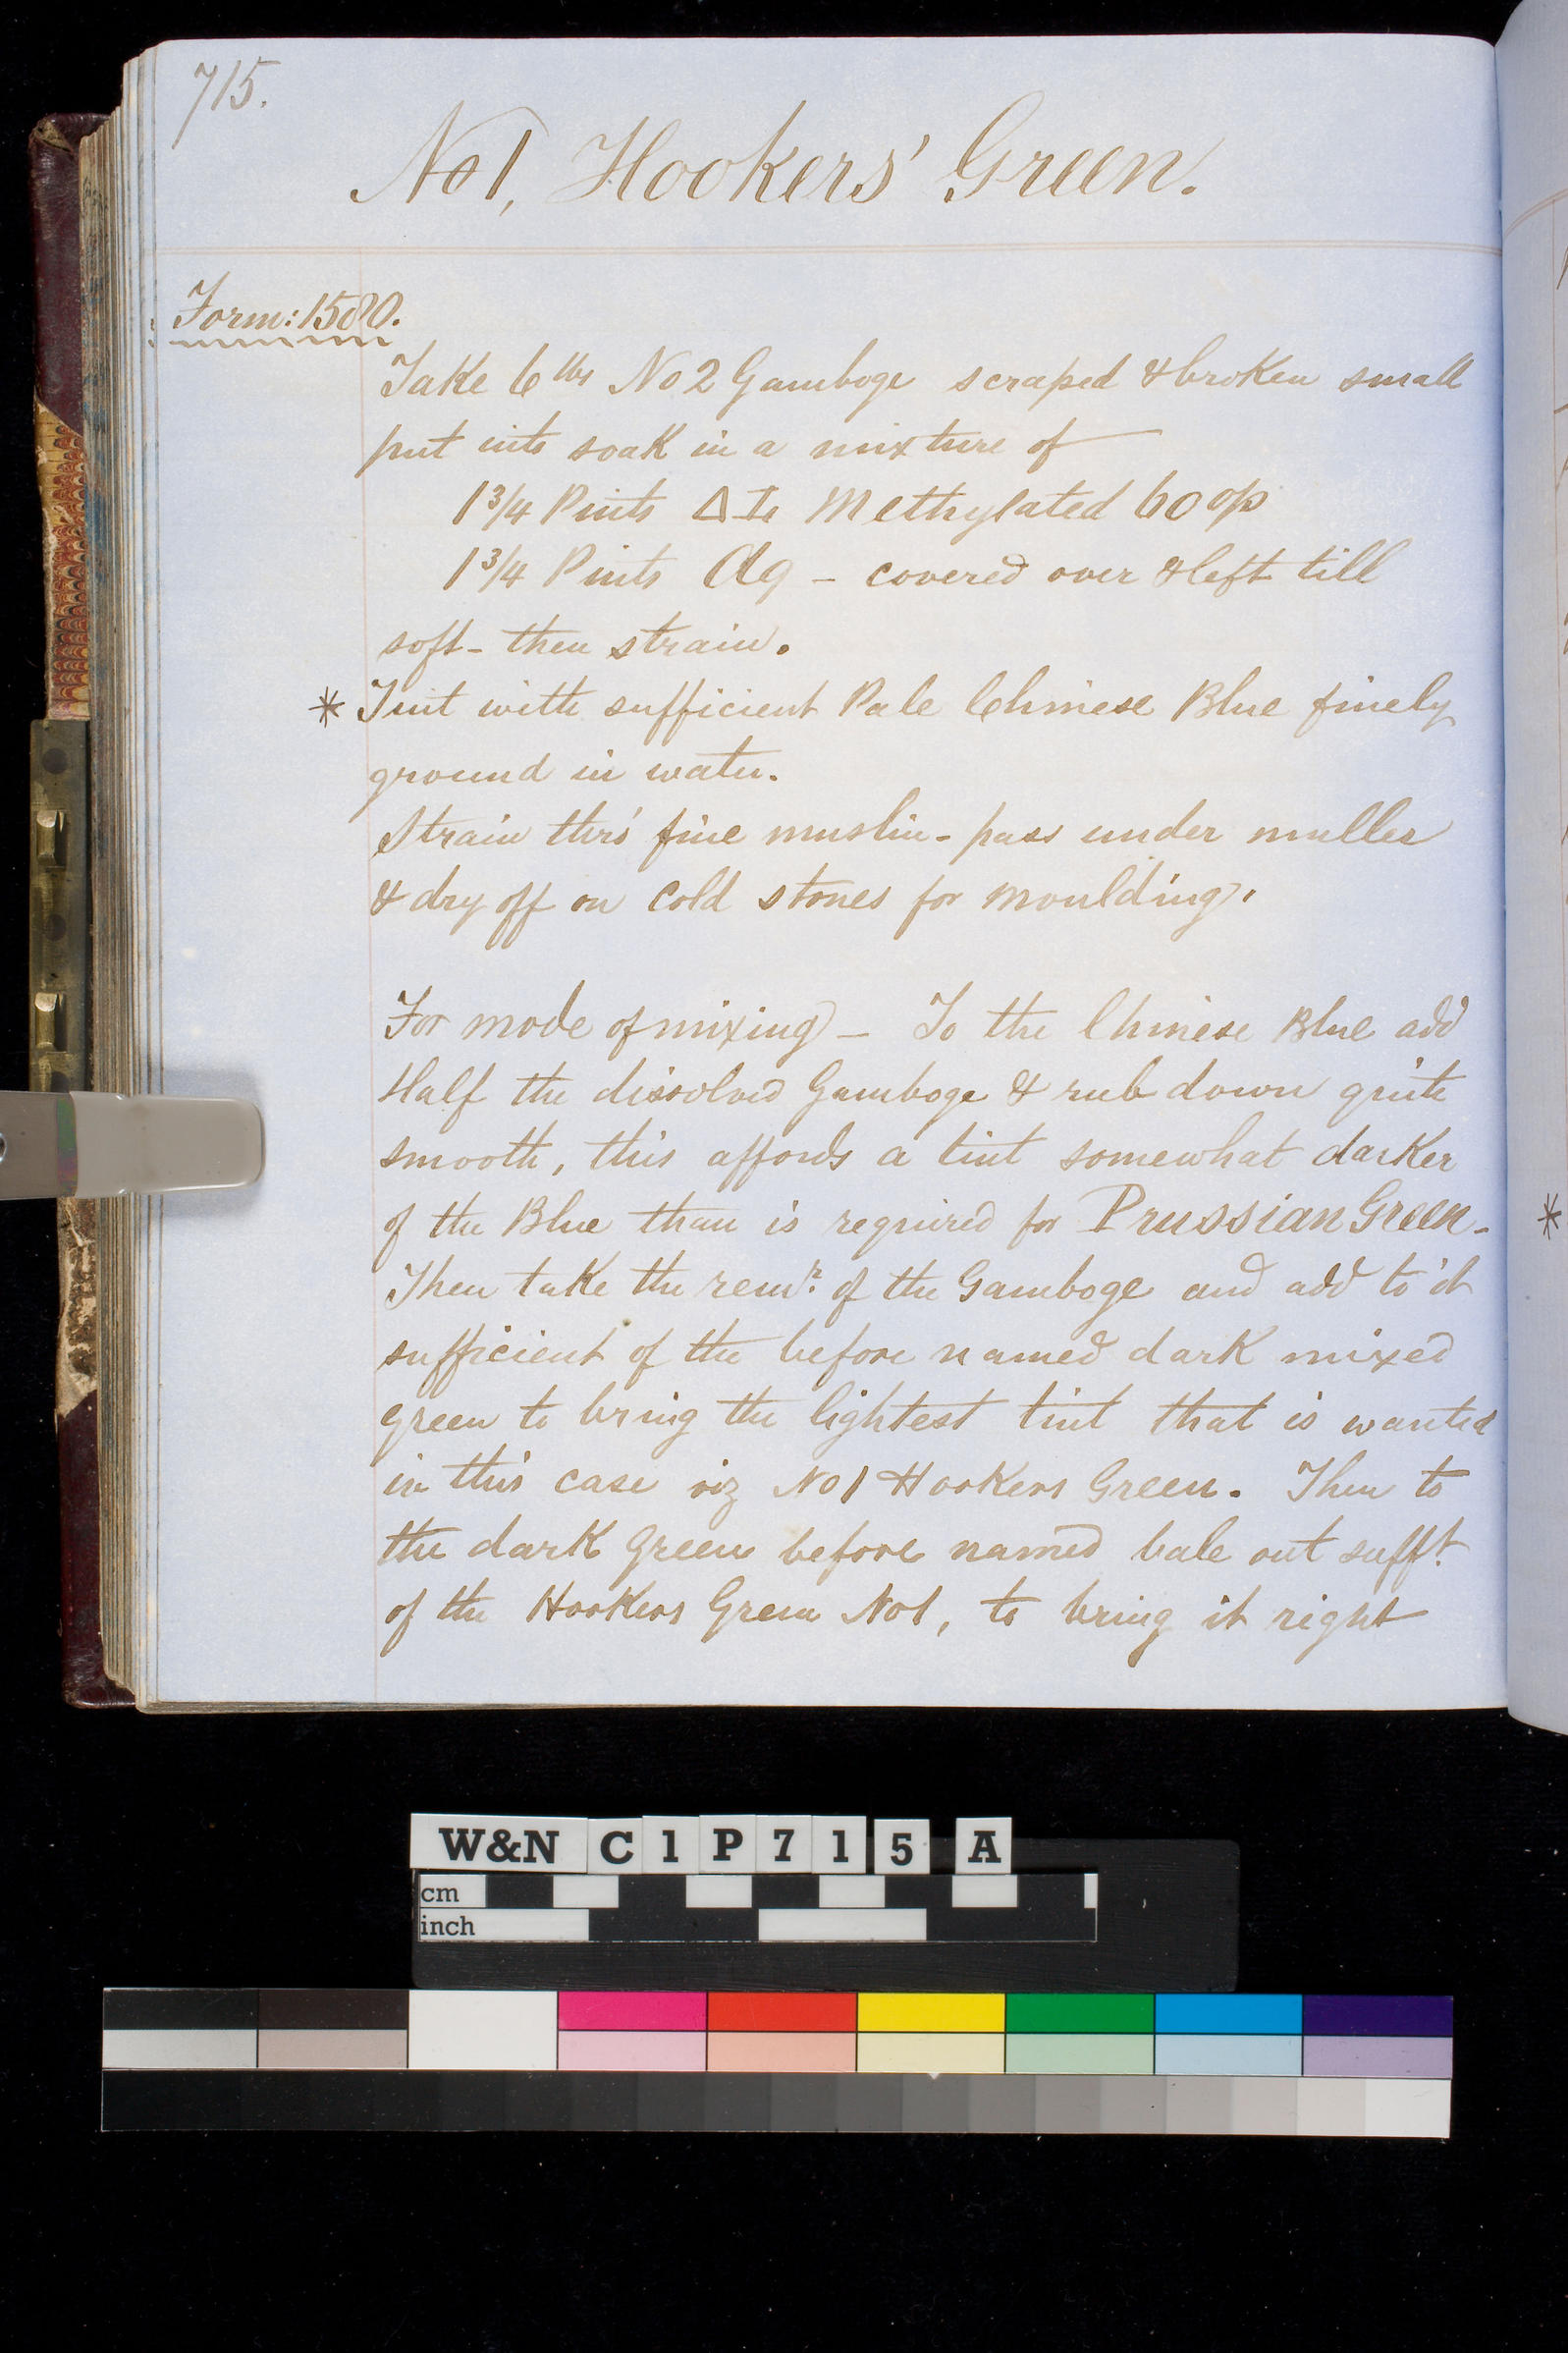 715.
No 1, Hookers' Green.
Form: 1580.
Take 6 lbs No 2 Gamboge scraped & broken small
put into soak in a mixture of
1 3/4 Pints Methylated 60 op
1 3/4 Pints Aq - covered over & left till
soft - then strain.
* Tint with sufficient Pale Chinese Blue finely
ground in water.
Strain thro' fine muslin - pass under muller
& dry off on cold stones for moulding.
For mode of mixing - To the Chinese Blue add
Half the dissolved Gamboge & rub down quite
smooth, this affords a tint somewhat darker
of the Blue than is required for Prussian Green - *
Then take the remr. of the Gamboge and add to it
sufficient of the before named dark mixed
green to bring the lightest tint that is wanted
in this case viz No 1 Hookers Green. Then to
the dark green before named bale out sufft.
of the Hookers Green No 1, to bring it right
W&N C1P715 A
cm
inch